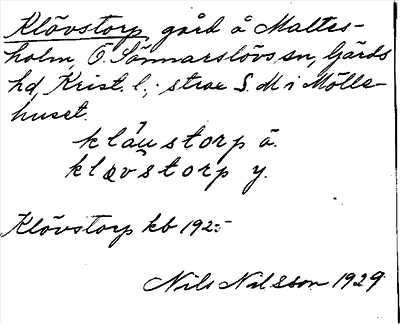 Klövstorp, gård å Maltes-
holm, Ö. Sönnarslövs sn, Gärds
hd, Krist. l.; strax S. M i Mölle-
huset.
kläustorp ä.
klævstorp y.
Klövstorp kb 1925
Nils Nilsson 1929